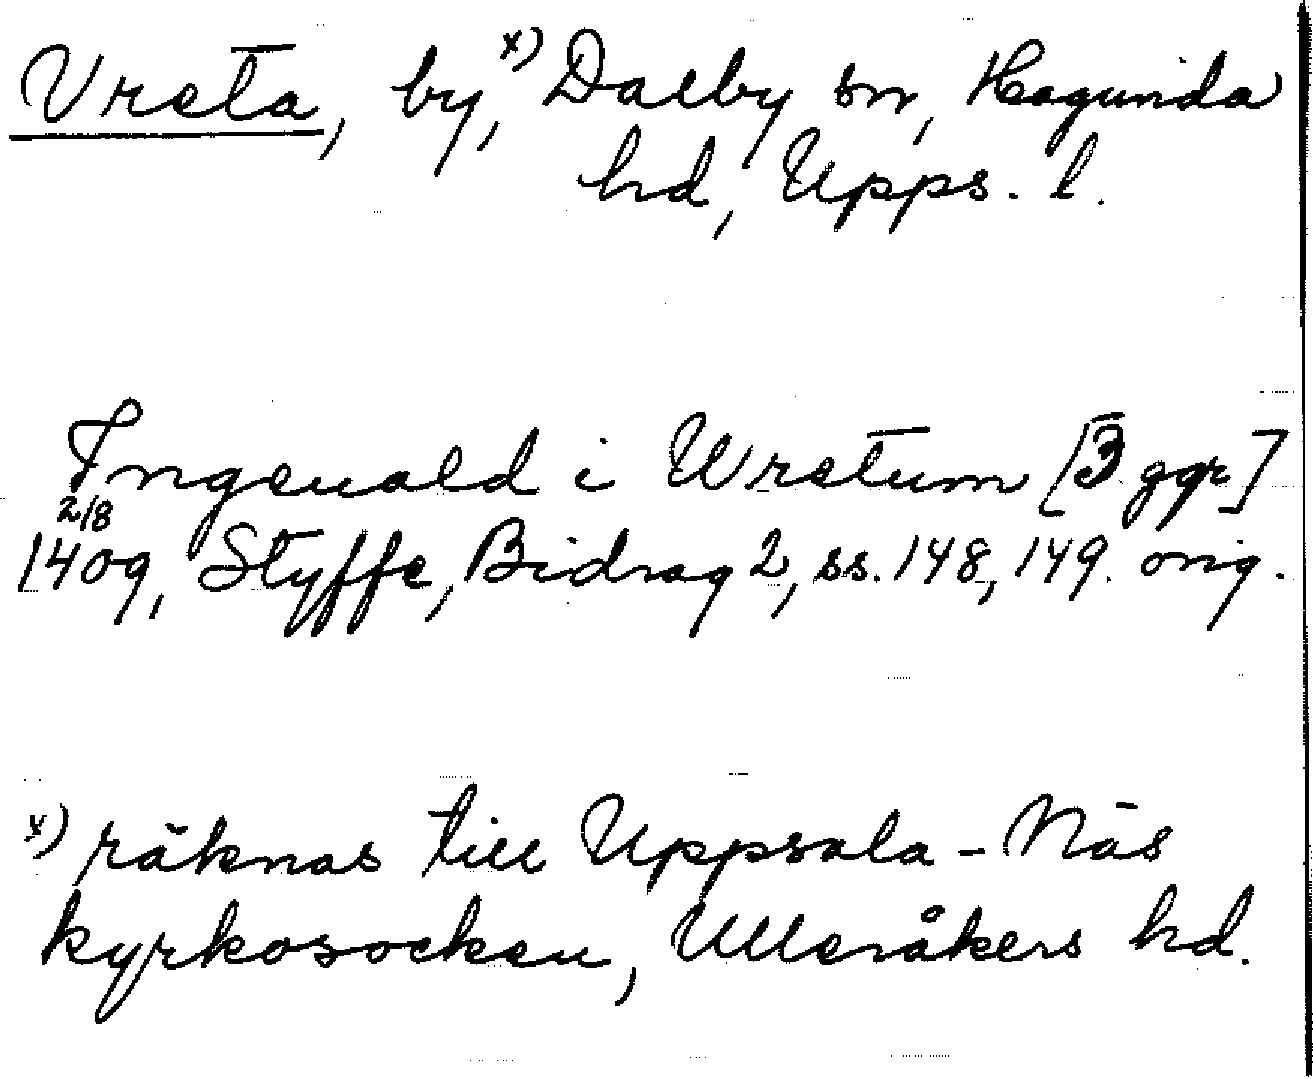 Vreta, by,x) Dalby sn, Hagunda
hd, Upps. l.
Ingeuald i Wretum [3 ggr]
2/8
1409, Styffe, Bidrag 2, ss. 148, 149. orig.
x) räknas till Uppsala-Näs
kyrkosocken, Ulleråkers hd.